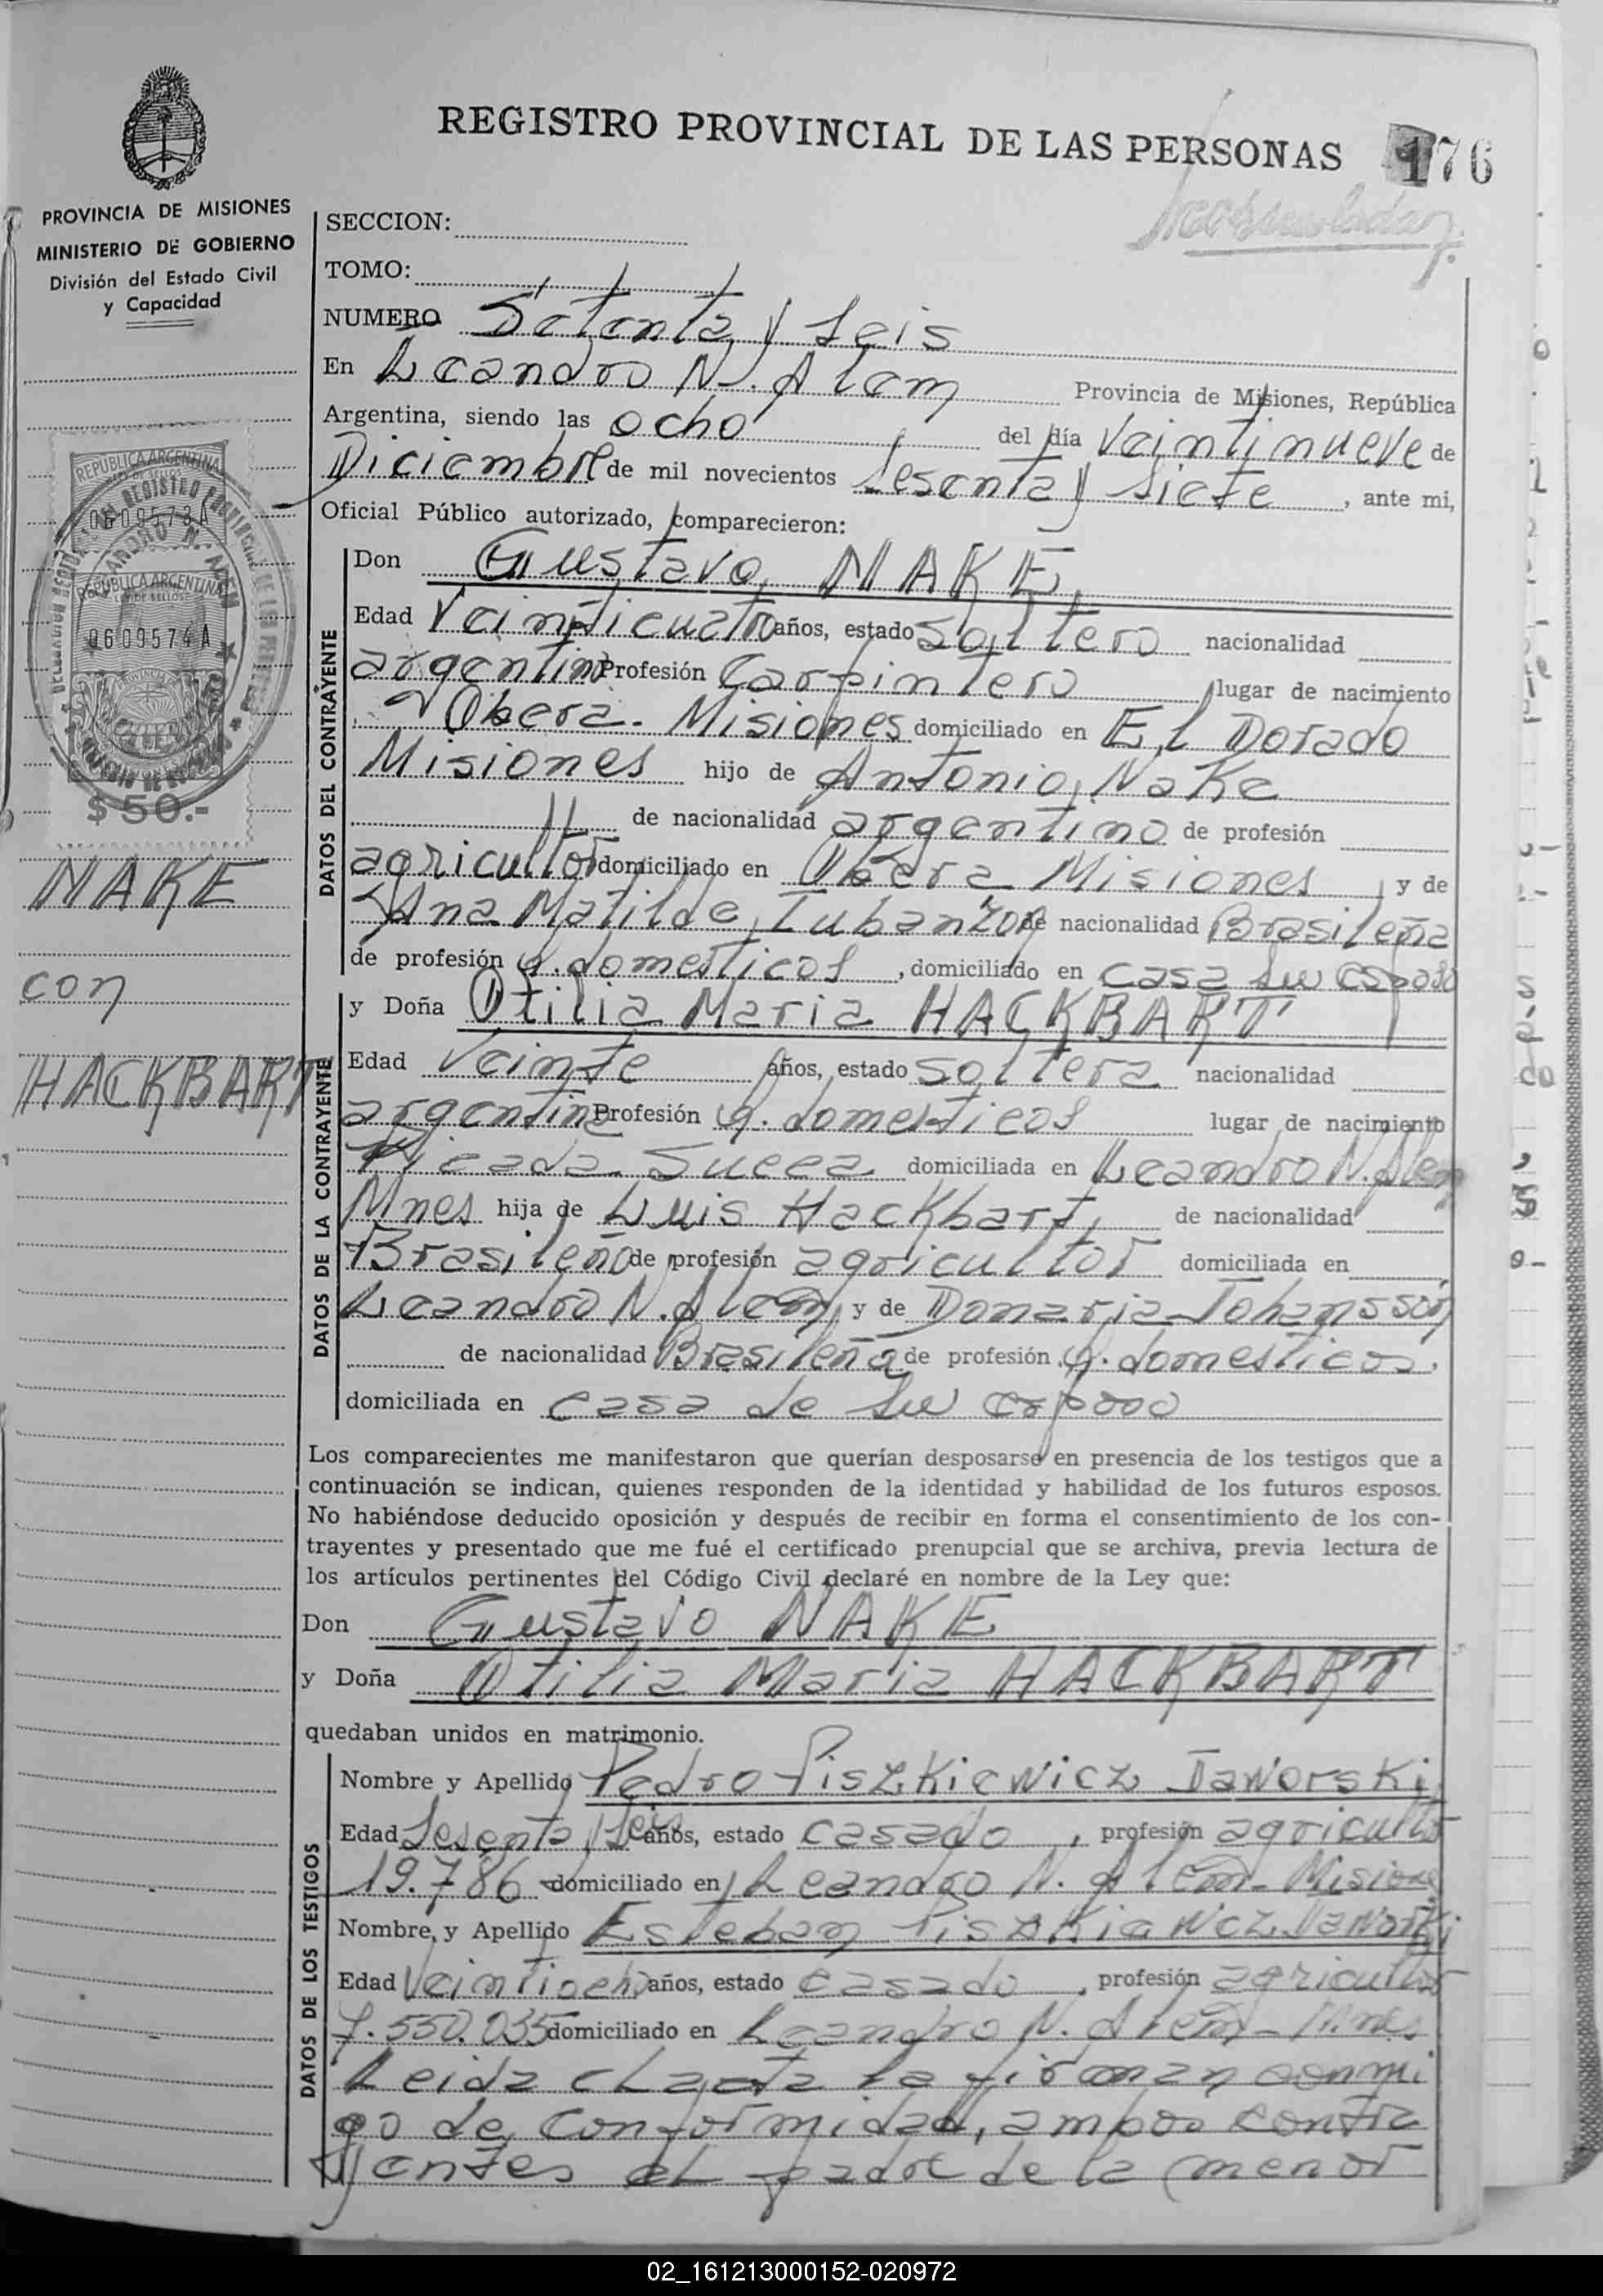 REGISTRO PROVINCIAL DE LAS PERSONAS 176
PROVINCIA DE MISIONES
MINISTERIO DE GOBIERNO
División del Estado Civil
y Capacidad
REPUBLICA ARGENTINA
0609573A
REPUBLICA ARGENTINA
LEY DE SELLOS
0609574A
$ 50.-
NAKE
con
HACKBART
SECCION:
TOMO:
NUMERO Setenta y Seis
En Leandro N. Alem Provincia de Misiones, República
Argentina, siendo las ocho del día Veintinueve de
Diciembre de mil novecientos Sesenta y Siete, ante mi,
Oficial Público autorizado, comparecieron:
DATOS DEL CONTRAYENTE
Don Gustavo NAKE
Edad Veinticuatro años, estado Soltero nacionalidad
argentino Profesión Carpintero lugar de nacimiento
Obera - Misiones domiciliado en El Dorado
Misiones hijo de Antonio Nake
de nacionalidad argentino de profesión
agricultor domiciliado en Obera Misiones y de
Ana Matilde de nacionalidad Brasileña
de profesión q. domesticos, domiciliado en casa su esposo
DATOS DE LA CONTRAYENTE
y Doña Otilia Maria HACKBART
Edad Veinte años, estado Soltera nacionalidad
argentina Profesión q. domesticos lugar de nacimiento
Picada Sueca domiciliada en Leandro N. Alem
Mnes hija de Luis Hackbart, de nacionalidad
Brasileño de profesión agricultor domiciliada en
Leandro N. Alem y de Domaria Johansson
de nacionalidad Brasileña de profesión q. domesticos.
domiciliada en casa de su esposo
Los comparecientes me manifestaron que querían desposarse en presencia de los testigos que a
continuación se indican, quienes responden de la identidad y habilidad de los futuros esposos.
No habiéndose deducido oposición y después de recibir en forma el consentimiento de los con-
trayentes y presentado que me fué el certificado prenupcial que se archiva, previa lectura de
los artículos pertinentes del Código Civil declaré en nombre de la Ley que:
Don Gustavo NAKE
y Doña Otilia Maria HACKBART
quedaban unidos en matrimonio.
DATOS DE LOS TESTIGOS
Nombre y Apellido Pedro Piszkiewicz Jaworski
Edad Sesenta y Seis años, estado casado, profesión agricultor
19.786 domiciliado en Leandro N. Alem - Misiones
Nombre y Apellido Esteban Piszkiewicz Jaworski
Edad Veintiocho años, estado casado, profesión agricultor
7.550.035 domiciliado en Leandro N. Alem - Mnes
Leida el acta la firman conmi
go de conformidad, ambos contra
yentes el padre de la menor
02_161213000152-020972